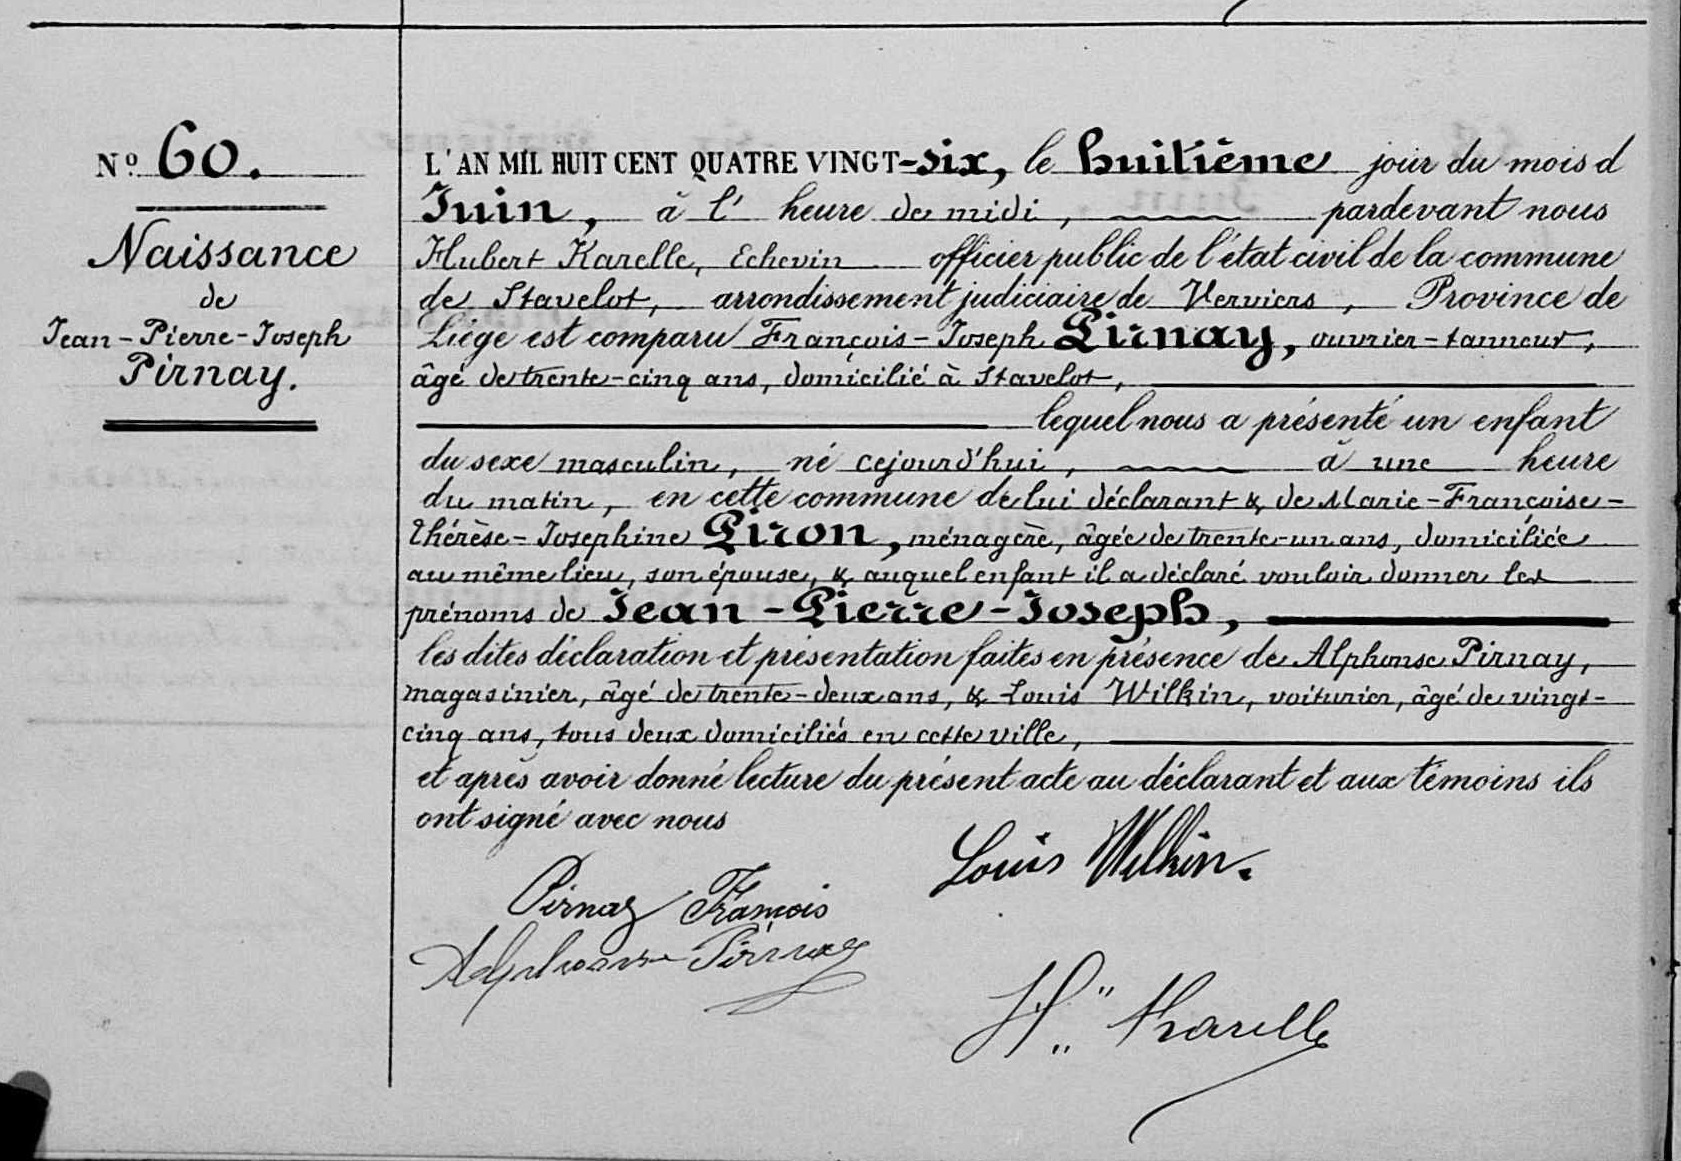 Nº 60.
Naissance
de
Jean-Pierre-Joseph
Pirnay.
L'AN MIL HUIT CENT QUATRE VINGT-six, le huitième jour du mois d
Juin, à l' heure de midi, pardevant nous
Hubert Karelle, Echevin officier public de l'état civil de la commune
de Stavelot, arrondissement judiciaire de Verviers, Province de
Liège est comparu François-Joseph Pirnay, ouvrier-tanneur,
âgé de trente-cinq ans, domicilié à Stavelot,
lequel nous a présenté un enfant
du sexe masculin, né cejourd'hui, à une heure
du matin, en cette commune de lui déclarant & de Marie-Françoise-
Thérèse-Josephine Piron, ménagère, âgée de trente-un ans, domiciliée
au même lieu, son épouse, & auquel enfant il a déclaré vouloir donner les
prénoms de Jean-Pierre-Joseph,
les dites déclaration et présentation faites en présence de Alphonse Pirnay,
magasinier, âgé de trente-deux ans, & Louis Wilkin, voiturier, âgé de vingt-
cinq ans, tous deux domiciliés en cette ville,
et après avoir donné lecture du présent acte au déclarant et aux témoins ils
ont signé avec nous
Louis Wilkin.
Pirnay François
Alphonse Pirnay
H" Karelle